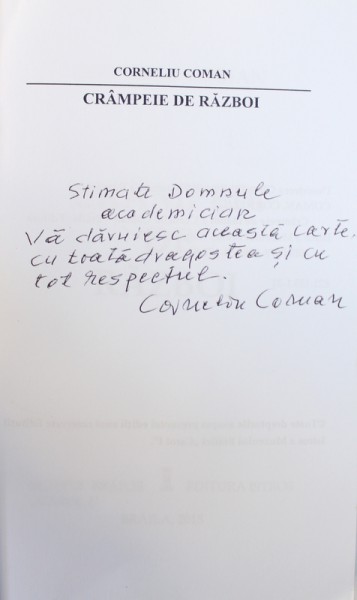 CORNELIU COMAN
CRÂMPEIE DE RĂZBOI
Stimate Domnule
academician
Vă dăruiesc această carte.
cu toată dragostea și cu
tot respectul.
Corneliu Coman